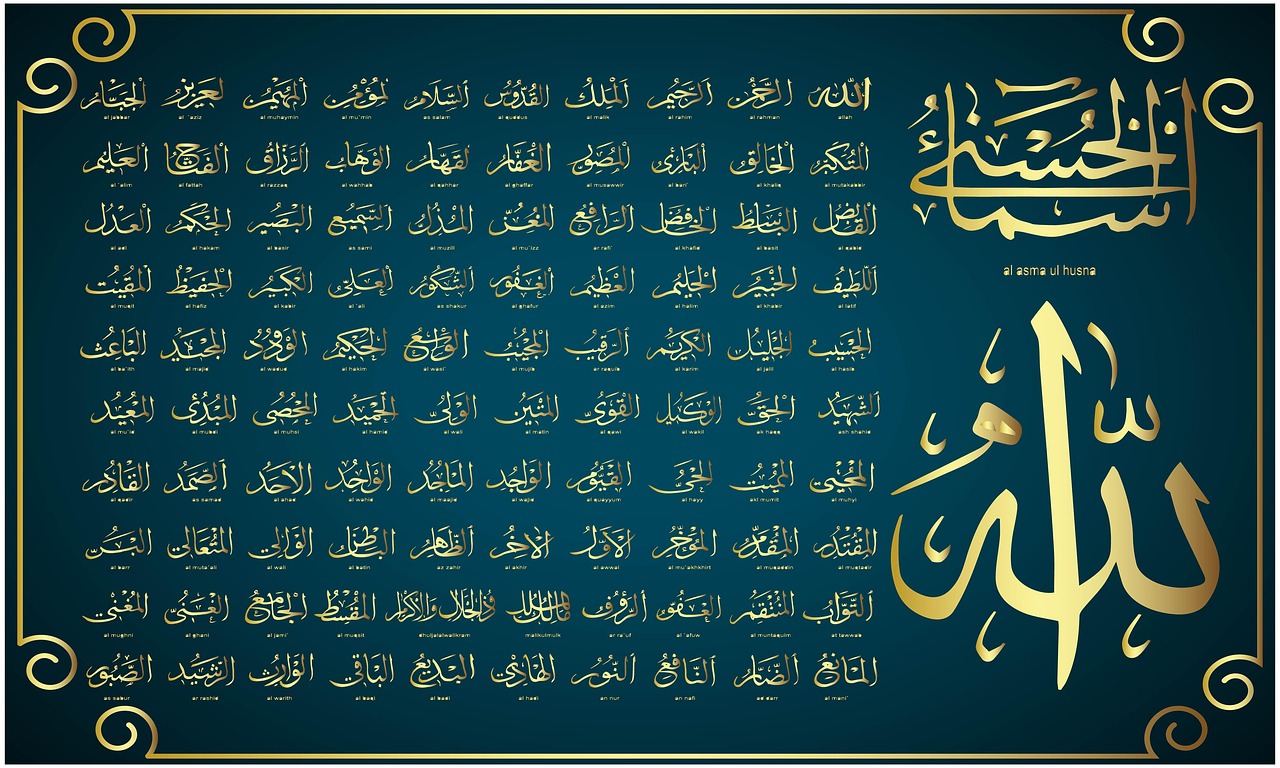 الأسماء الحسنى
al asma ul husna
الله
الله الرحمن الرحيم الملك القدوس السلام المؤمن المهيمن العزيز الجبار
allah al rahman al rahim al malik al quddus as salam al mu`min al muhaymin al `aziz al jabbar
المتكبر الخالق البارئ المصور الغفار القهار الوهاب الرزاق الفتاح العليم
al mutakabbir al khaliq al bari' al musawwir al ghaffar al qahhar al wahhab al razzaq al fattah al `alim
القابض الباسط الخافض الرافع المعز المذل السميع البصير الحكم العدل
al qabid al basit al khafid ar rafi` al mu`izz al muzill as sami al basir al hakam al adl
اللطيف الخبير الحليم العظيم الغفور الشكور العلي الكبير الحفيظ المقيت
al latif al khabir al halim al azim al ghafur as shakur al `ali al kabir al hafiz al muqit
الحسيب الجليل الكريم الرقيب المجيب الواسع الحكيم الودود المجيد الباعث
al hasib al jalil al karim ar raquib al mujib al wasi` al hakim al wadud al majid al ba`ith
الشهيد الحق الوكيل القوى المتين الولى الحميد المحصى المبدئ المعيد
ash shahid ak haqq al wakil al qawi al matin al wali al hamid al muhsi al mubdi al mu`id
المحيى المميت الحى القيوم الواجد الماجد الواحد الاحد الصمد القادر
al muhyi akl mumit al hayy al quayyum al wajid al maajid al wahid al ahad as samad al qadir
المقتدر المقدم المؤخر الأول الآخر الظاهر الباطن الوالي المتعالي البر
al muqtadir al muqaddin al mu`akhkhirt al awwal al akhir az zahir al batin al wali al muta`ali al barr
التواب المنتقم العفو الرؤوف مالك الملك ذو الجلال والإكرام المقسط الجامع الغني المغني
at tawwab al muntaquim al `afuw ar ra`uf malikulmulk dhuljalalwalikram al muqsit al jami` al ghani al mughni
المانع الضار النافع النور الهادي البديع الباقي الوارث الرشيد الصبور
al mani` ad darr an nafi an nur al hadi al badi al baqi al warith ar rashid as sabur